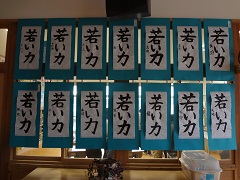 若い力
若い力
若い力
若い力
若い力
若い力
若い力
若い力
若い力
若い力
若い力
若い力
若い力
若い力